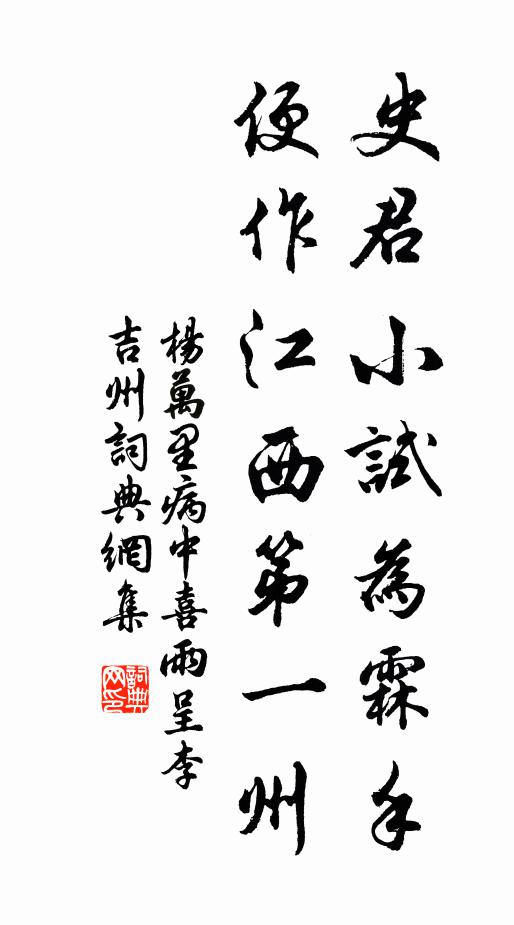 史君小試為霖手
便作江西第一州
楊萬里病中喜雨呈李
吉州詞典網集
詞典
网印